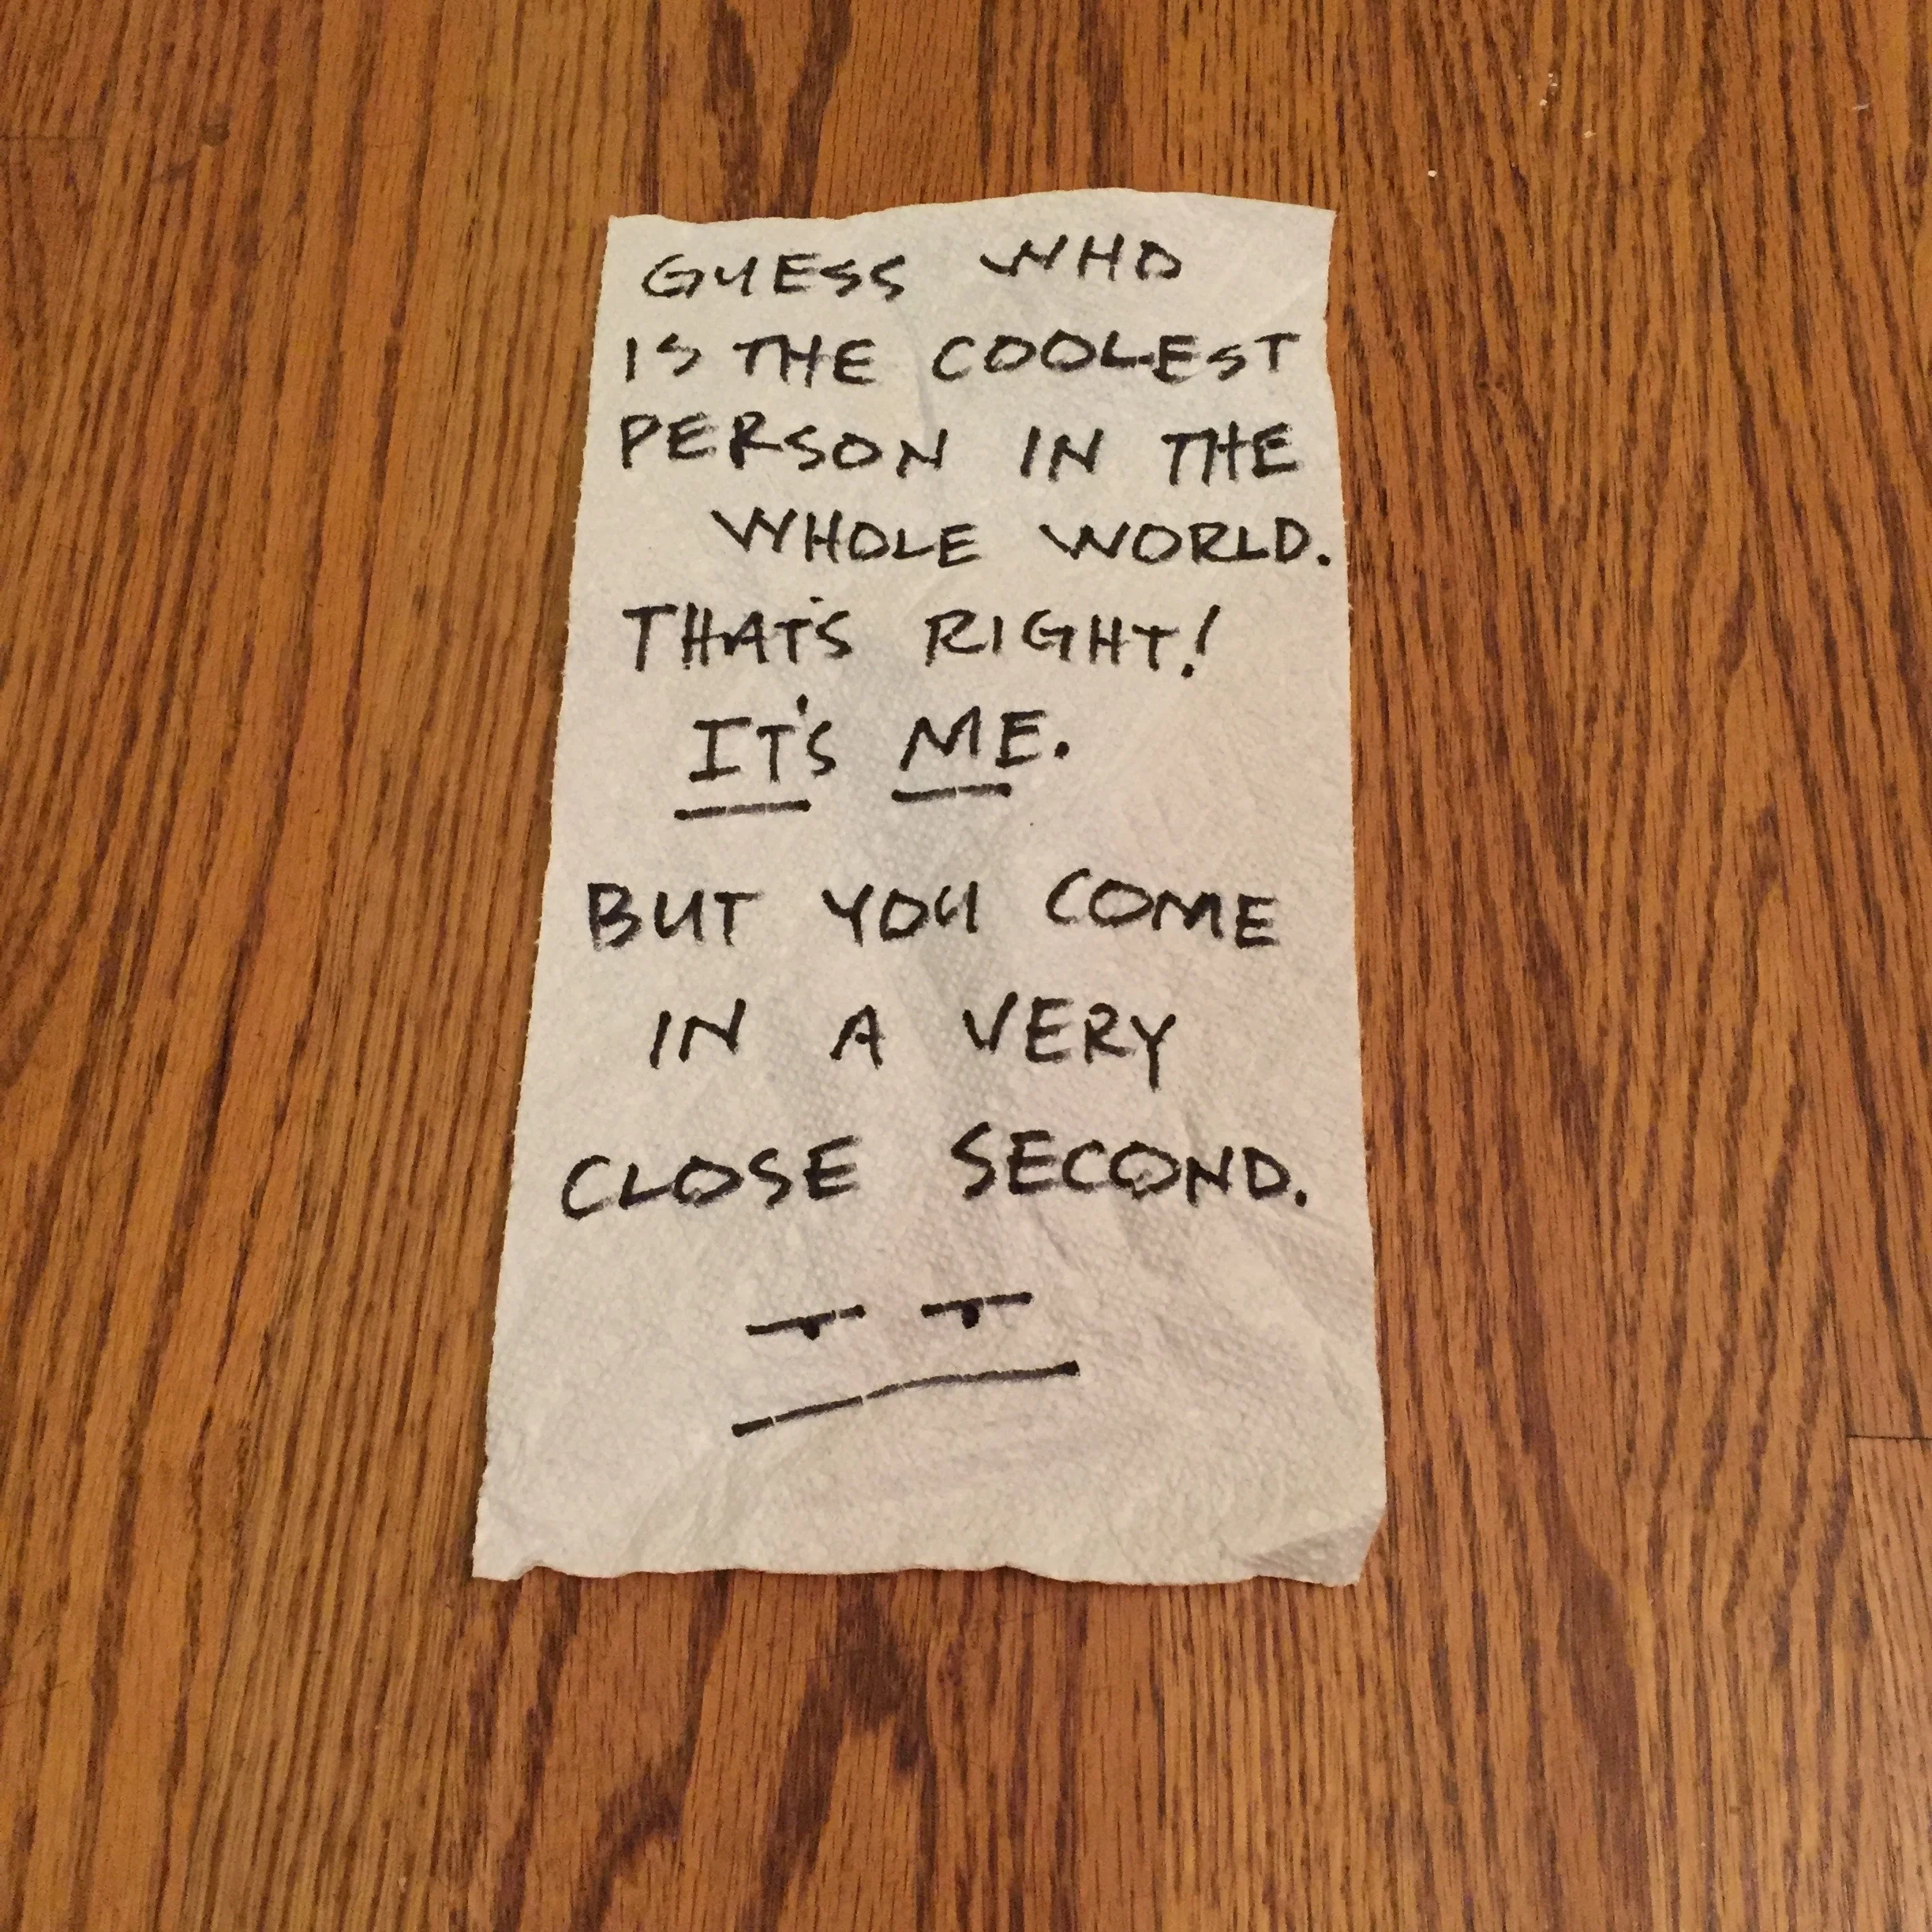 GUESS WHO
IS THE COOLEST
PERSON IN THE
WHOLE WORLD.
THAT'S RIGHT!
IT'S ME.
BUT YOU COME
IN A VERY
CLOSE SECOND.